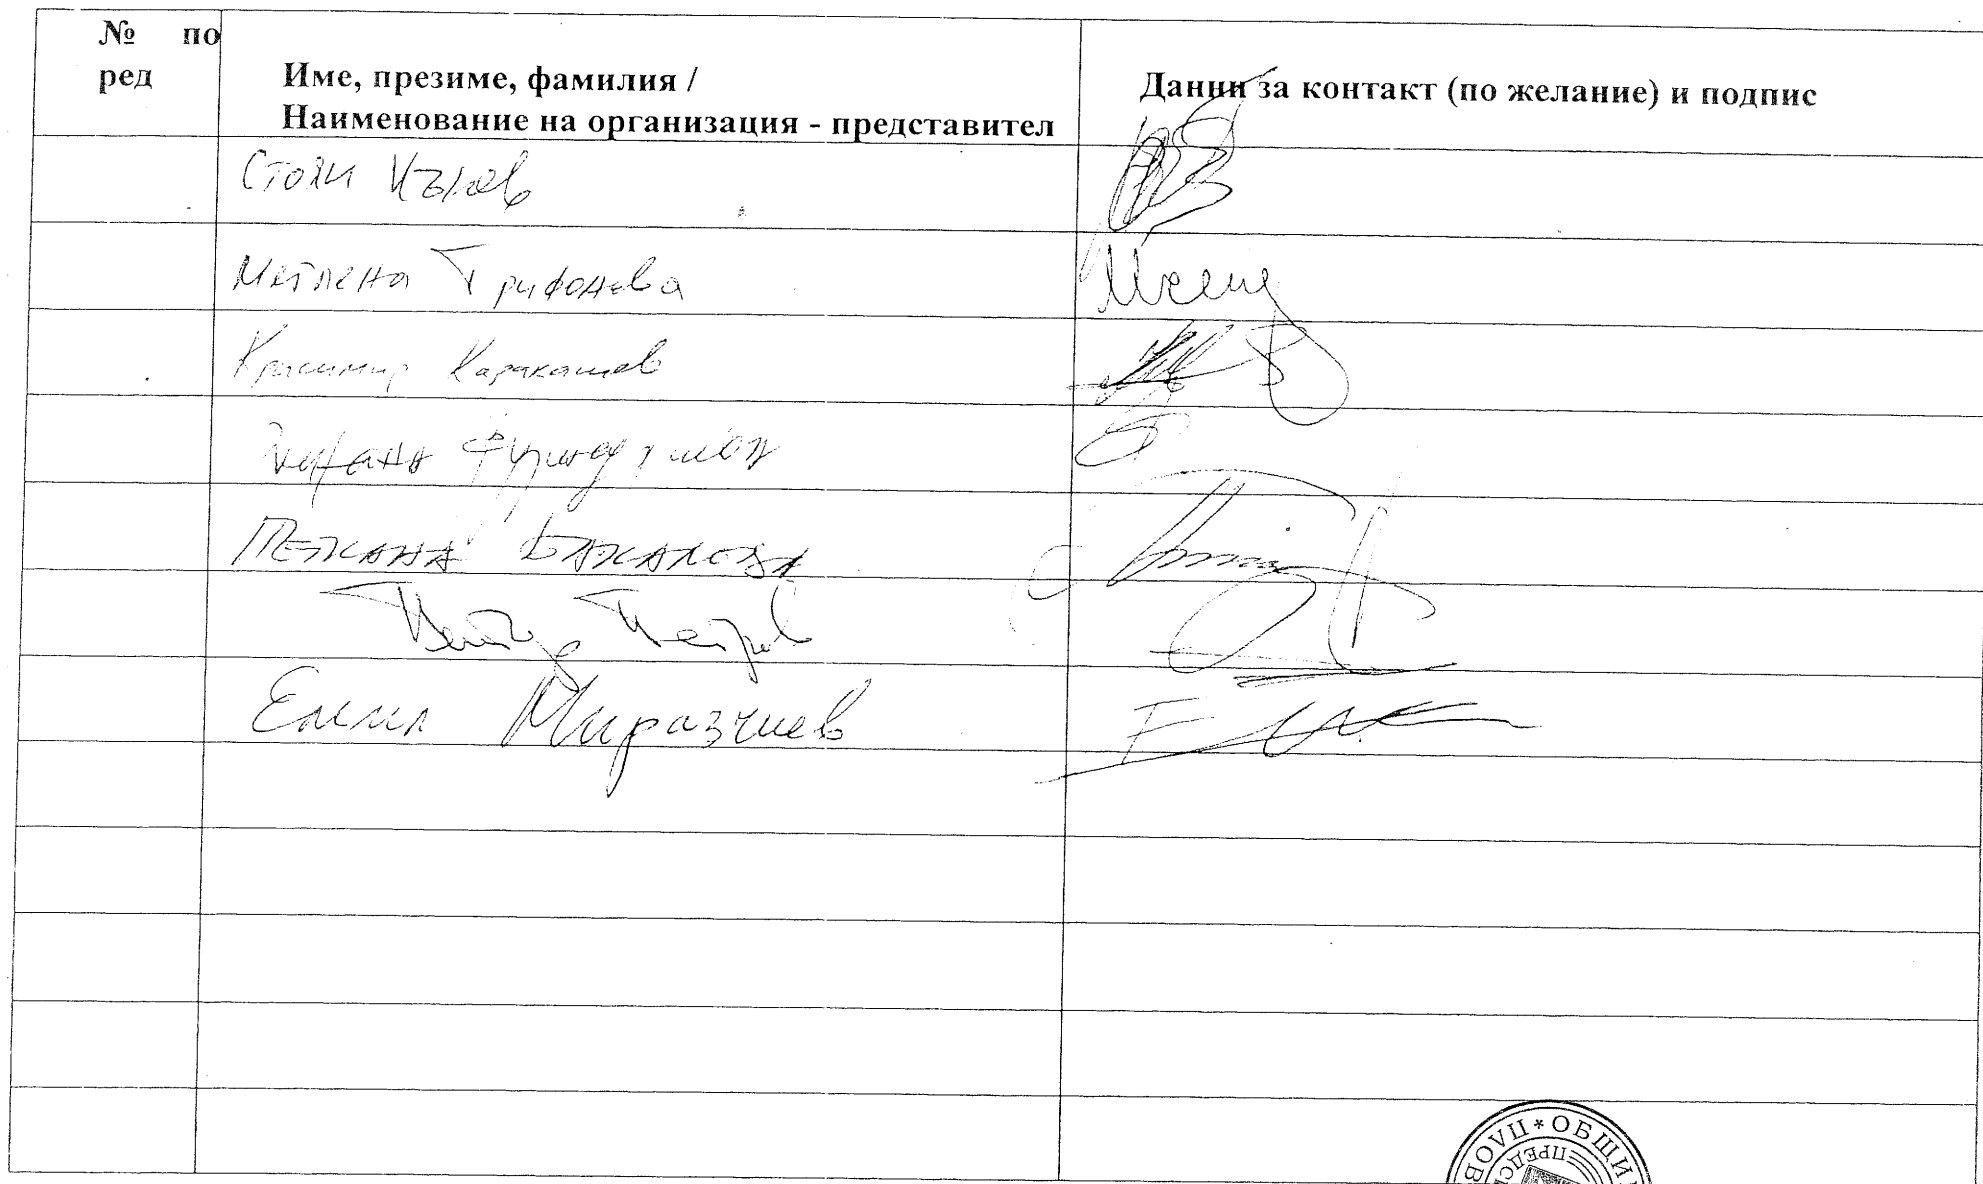 № по
ред
Име, презиме, фамилия /
Наименование на организация - представител
Данни за контакт (по желание) и подпис
Стоян Кънев
Трифонова
Красимир Каракашев
Бакалова
Петър Петров
Емил Миразчиев
ПЛОВ * ОБЩИН
ПРЕДС